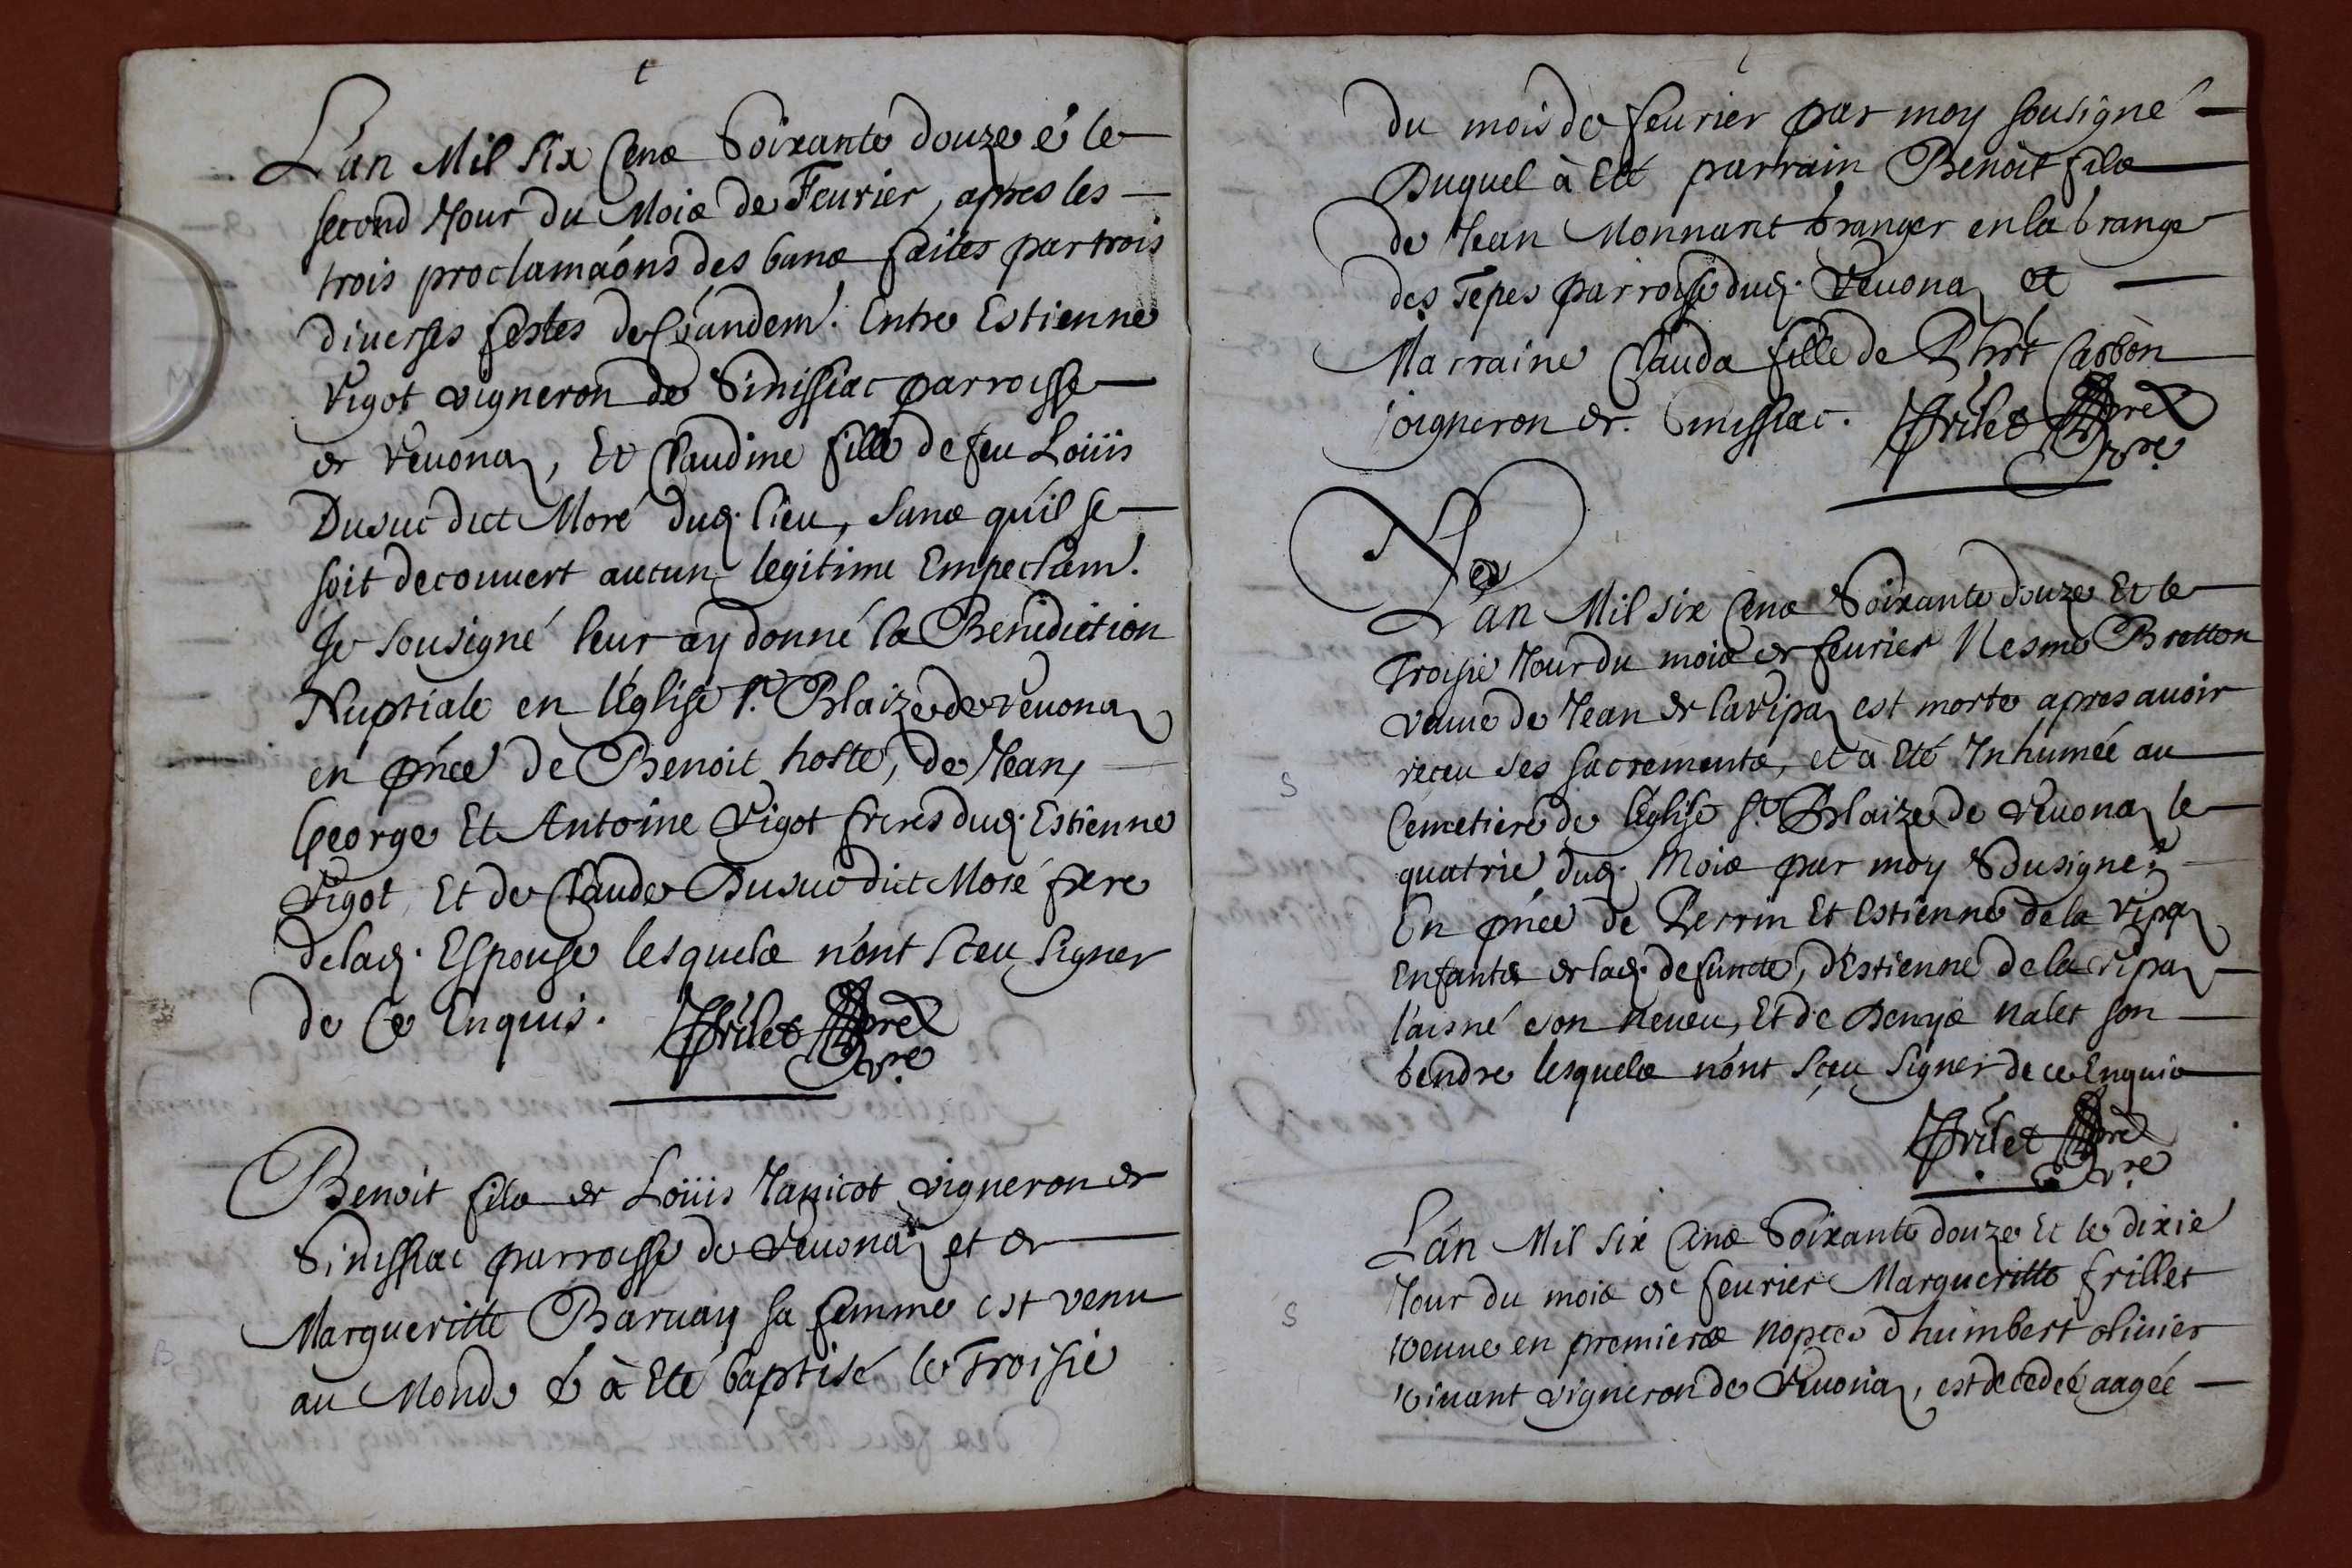 L'an Mil Six Cens Soixante douze é le
second Jour du Mois de Feurier, apres les
trois proclamaõns des bans faites par trois
diuerses festes de Com̃andem̃. Entre Estienne
Vigot vigneron de Sinissiac parroisse
de Veuonaz, Et Claudine fille de feu Loüis
Dusuc dict Moré dud. lieu, Sans qu'il se
soit decouuert aucun legitime Empecham̃.
Je Sousigné leur ay donné la Benidiction
Nuptiale en l'église S.t Blaize de Veuonaz
en pñce de Benoit hoste, de Jean,
George Et Antoine Vigot freres dud. Estienne
Vigot, Et de Claude Dusuc dict Moré frere
de lad. Espouse lesquels n'ont Sceu Signer
de Ce Enquis. Frilet pre
Benoit fils de Loüis Janicot vigneron de
Sinissiac parroisse de Veuonaz et de
Margueritte Baruay sa femme est venu
au Monde é à Eté baptisé le Troisie
du mois de feurier par moy sousigné
Duquel à Eté parrain Benoit fils
de Jean Monnaret granger en la grange
des Tepes parroisse dud. Veuonaz et
Marraine Clauda fille de Phrt Carbon
vigneron de Sinissiac. Frilet pre
L'an Mil six Cens Soixante douze Et le
Troisie Jour du mois de feurier Nesme Bretton
veuue de Jean de la Ripaz est morte apres auoir
receu ses sacrements, et à Eté Inhumée au
Cemetiere de l'église S.t Blaize de Veuonaz le
quatrie dud. Mois par moy Sousigné
En pñce de Perrin Et Estienne de la Ripaz
Enfants de lad. defuncte, d'Estienne de la Ripaz
l'aisné son neueu, Et de Denys Nalet son
Gendre lesquels n'ont Sceu Signer de ce Enquis
Frilet pre
L'an Mil Six Cens Soixante douze Et le dixie
Jour du mois de feurier Margueritte frillet
veuue en premieres nopces d'humbert oliuier
viuant vigneron de Veuonaz, est decedeé aageé